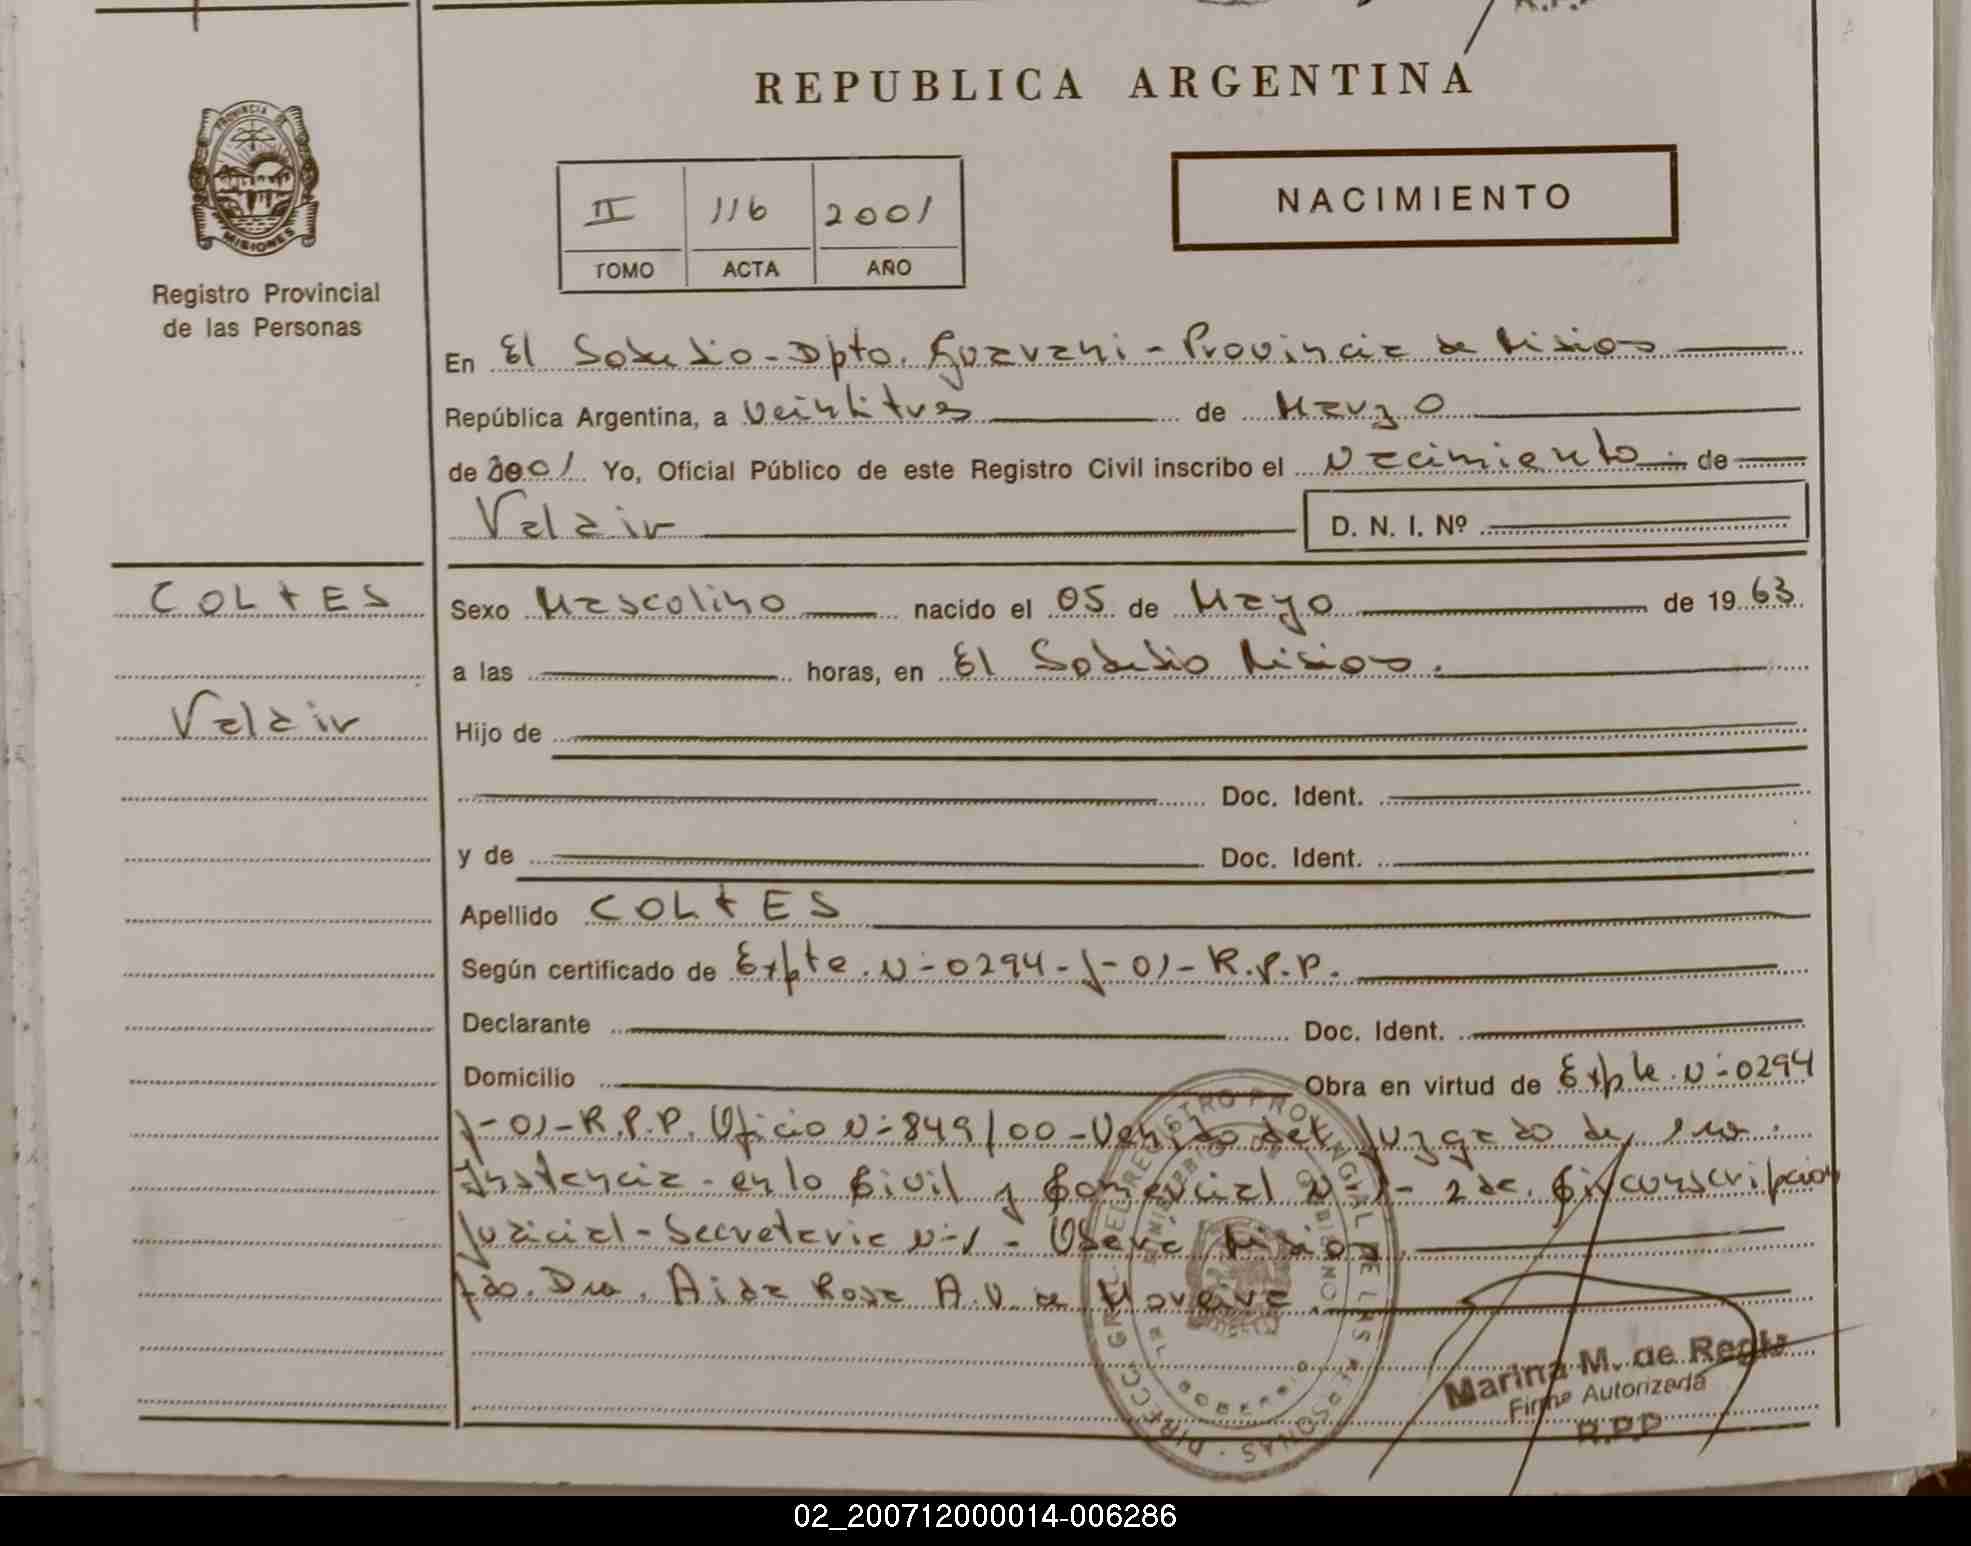 REPUBLICA ARGENTINA
PROVINCIA DE
MISIONES
Registro Provincial
de las Personas
II 116 2001
TOMO ACTA AÑO
NACIMIENTO
En El Soberbio - Dpto. Guarani - Provincia de Misiones
República Argentina, a Veintitres de Marzo
de 2001 Yo, Oficial Público de este Registro Civil inscribo el Nacimiento de
Valair
D. N. I. Nº
COLTES
Valair
Sexo Masculino nacido el 05 de Mayo de 19 63
a las horas, en El Soberbio Misiones.
Hijo de
Doc. Ident.
y de Doc. Ident.
Apellido COLTES
Según certificado de Expte. N- 0294 - J - 01 - R.P.P.
Declarante Doc. Ident.
Domicilio Obra en virtud de Expte. N- 0294
J - 01 - R.P.P. Oficio N- 849/00 - Venido del Juzgado de 1ra.
Instancia - en lo Civil y Comercial N- 1 - 2da. Circunscripcion
Judicial - Secretaria N-1 - Oberá Misiones.
Fdo. Dra. Aida Rosa A.V. de Moreira.
Marina M. de Regis
Firma Autorizada
R.P.P
02_200712000014-006286